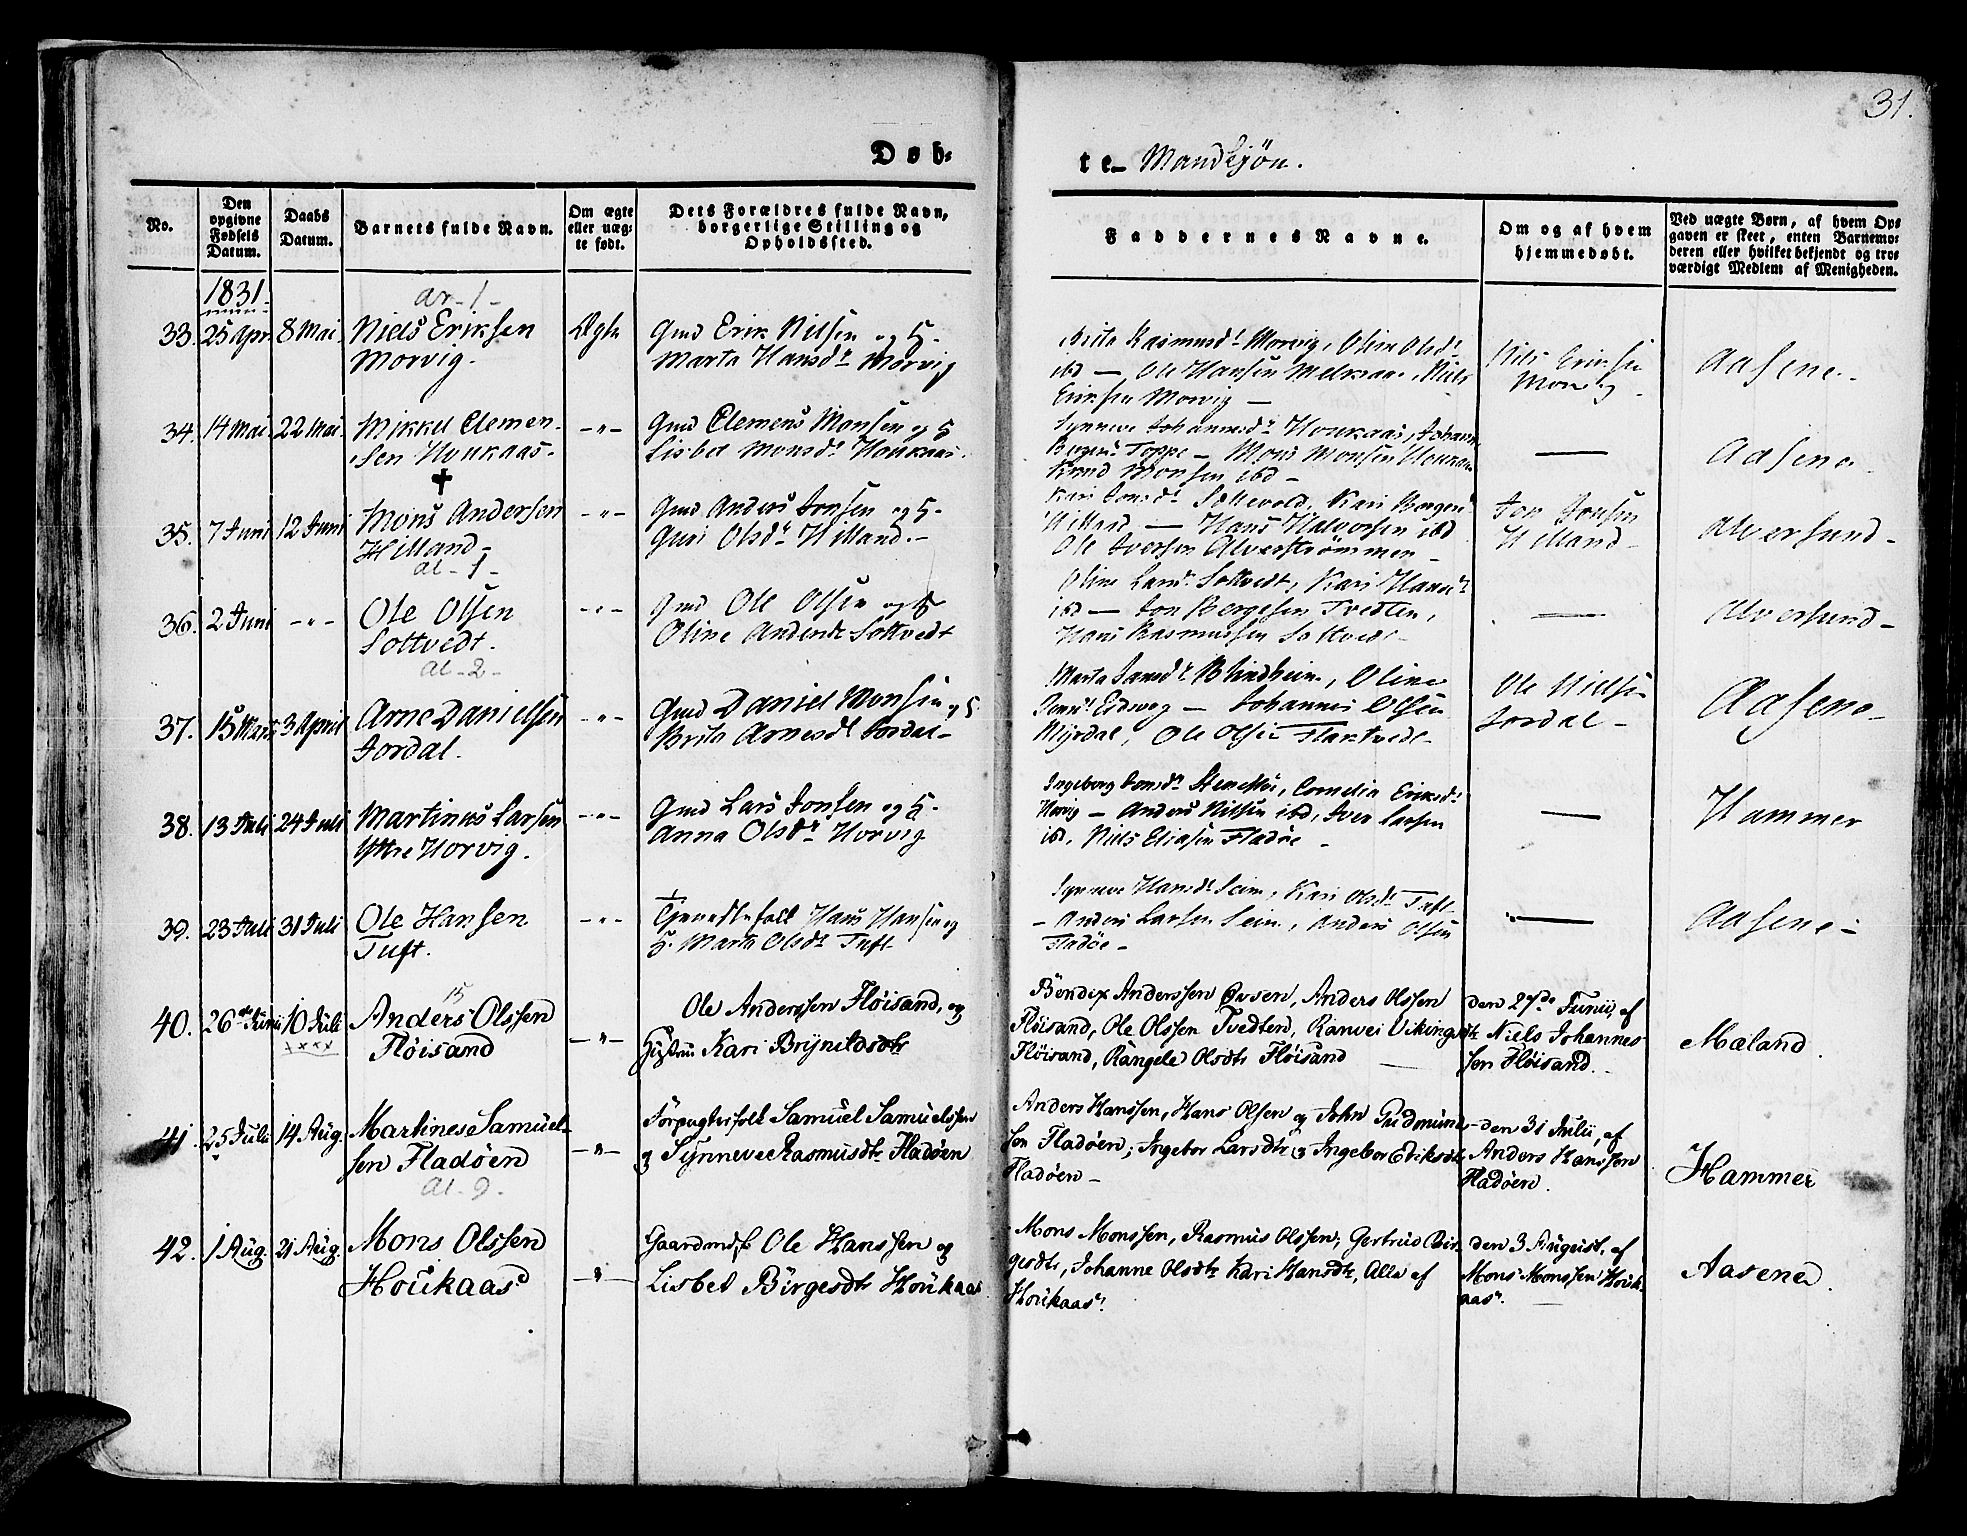 31.
Døb-
te_ Mandkjön.
No.
Den
opgivne
Fødsels
Datum.
Daabs
Datum.
Barnets fulde Navn.
Om ægte
eller uæg-
te født.
Dets Forældres fulde Navn,
borgerlige Stilling og
Opholdssted.
Faddernes Navne.
Om og af hvem
hjemmedøbt.
Ved uægte Børn, af hvem Op-
gaven er skeet, enten Barnemo-
deren eller hvilket bekjendt og tro-
værdigt Medlem af Menigheden.
1831.
33. 25 Apr. 8 Mai
Niels Eriksen
Morvig.
Ægte
Gmd Erik Nilsen og H.
Marta Hansdr Morvig
Brita Rasmusdr Morvig, Oline Olsdr
ibd — Ole Hansen Melkaas, Niels
Eriksen Morvig —
Nils Eriksen
Morvig
Aasene.
34. 14 Mai. 22 Mai.
Mikkel Clemen-
sen Houkaas-
—"—
Gmd Clemens Monsen og H
Lisbet Monsdr Houkaas.
Synneve Johannesdr Houkaas, Johanne
Toppe — Mons Monsen Houkaas
Knud Monsen ibd —
—
Aasene
✝
35. 7 Juni 12 Juni
Mons Andersen
Hilland -
al - 1 -
—"—
Gmd Anders Jonsen og H.
Guri Olsdr Hilland.-
Kari Jonsdr Kari
Hilland — Hans Halvorsen ibd
Ole Iversen Alverstrømmen —
Jon Jonsen
Hilland —
Alversund —
36. 2 Juni —"—
Ole Olsen
Soltvedt.
al - 2 -
—"—
Gmd Ole Olsen og H
Oline Andersdr Soltvedt
Oline Larsdr Soltvedt, Kari Hansdr
ibd — Jon Bergesen Tvedten,
Hans Rasmussen Soltvedt
—
Alversund —
37. 15 Marts 3 April
Arne Danielsen
Jordal.
—"—
Gmd Daniel Monsen og H
Brita Arnesdr Jordal —
Marta Blindheim, Oline
— Johannes Olsen
Mÿrdal, Ole Olsen
Ole Nilsen
Jordal —
Aasene
38. 13 Juli 24 Juli
Martinus Larsen
Ytre Horvig.
—"—
Gmd Lars Jonsen og H.
Anna Olsdr Horvig
Ingeborg Jonsdr Cornelia Eriksdr
Horvig — Anders Nilsen ibd, Iver Larsen
ibd, Niels Eliasen Fladöe —
—
Hammer
39. 23 Juli 31 Juli
Ole Hansen
Tuft.
—"—
Tjenestefolk Hans Hansen og
H. Marta Olsdr Tuft
Synneve Hansdr Seim, Kari Olsdr Tuft
— Anders Larsen Seim, Anders Olsen
Fladöe —
—
Aasene —
40. 26de Junii 10 Juli
15
Anders Olssen
Flöisand
—"—
Ole Anderssen Flöisand, og
Hustrue Kari Brynildsdtr
Bendix Anderssen Anders Olssen
Flöisand, Ole Olssen Tvedten, Ranvei Vikingsdtr
Flöisand, Rangele Olsdtr Flöisand
den 27de Junii, af
Niels Johannes-
sen Flöisand.
Mæland.
41. 25 Juli 14 Aug.
Martines Samuel-
sen Fladöen
al - 9.
—"—
Forpagterfolk Samuel Samuelssen
og Synneve Rasmusdtr Fladöen
Anders Hanssen, Hans Olsen og John Gudmund-
sen Fladöen; Ingebor Larsdtr og Ingebor Eriksdtr
Fladöen —
den 31 Julii, af
Anders Hanssen
Fladöen.
Hammer
42. 1 Aug. 21 Aug.
Mons Olssen
Houkaas
—"—
Gaardmdsf. Ole Hanssen og
Lisbet Birgesdtr Houkaas
Mons Monssen, Rasmus Olssen, Gertrud Bir-
gesdtr, Johanne Olsdtr Kari Hansdtr, Alle af
Houkaas.
den 3 August, af
Mons Monssen Houk-
aas.
Aasene.